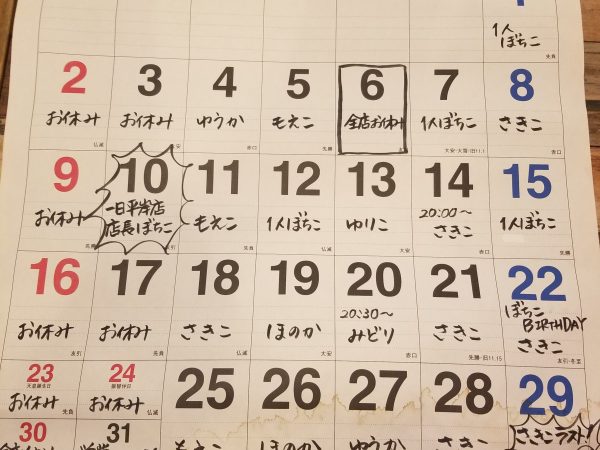 1
1人
ぼちこ
先負
2 3 4 5 6 7 8
お休み お休み ゆうか もえこ 全店お休み 1人ぼちこ さきこ
仏滅 大安 赤口 先勝 大安・大雪・旧11.1 赤口
9 10 11 12 13 14 15
お休み 一日平岸店 もえこ 1人ぼちこ ゆりこ 20:00〜 1人ぼちこ
店長ぼちこ さきこ
先勝 友引 先負 仏滅 大安 赤口 先勝
16 17 18 19 20 21 22
お休み お休み さきこ ほのか 20:30〜 さきこ ぼちこ
みどり BIRTHDAY
さきこ
友引 先負 仏滅 大安 赤口 先勝・旧11.15 友引・冬至
23 24 25 26 27 28 29
天皇誕生日 振替休日
お休み お休み
先負 仏滅
30 31 もえこ ほのか ゆうか さきこ さきこラスト!